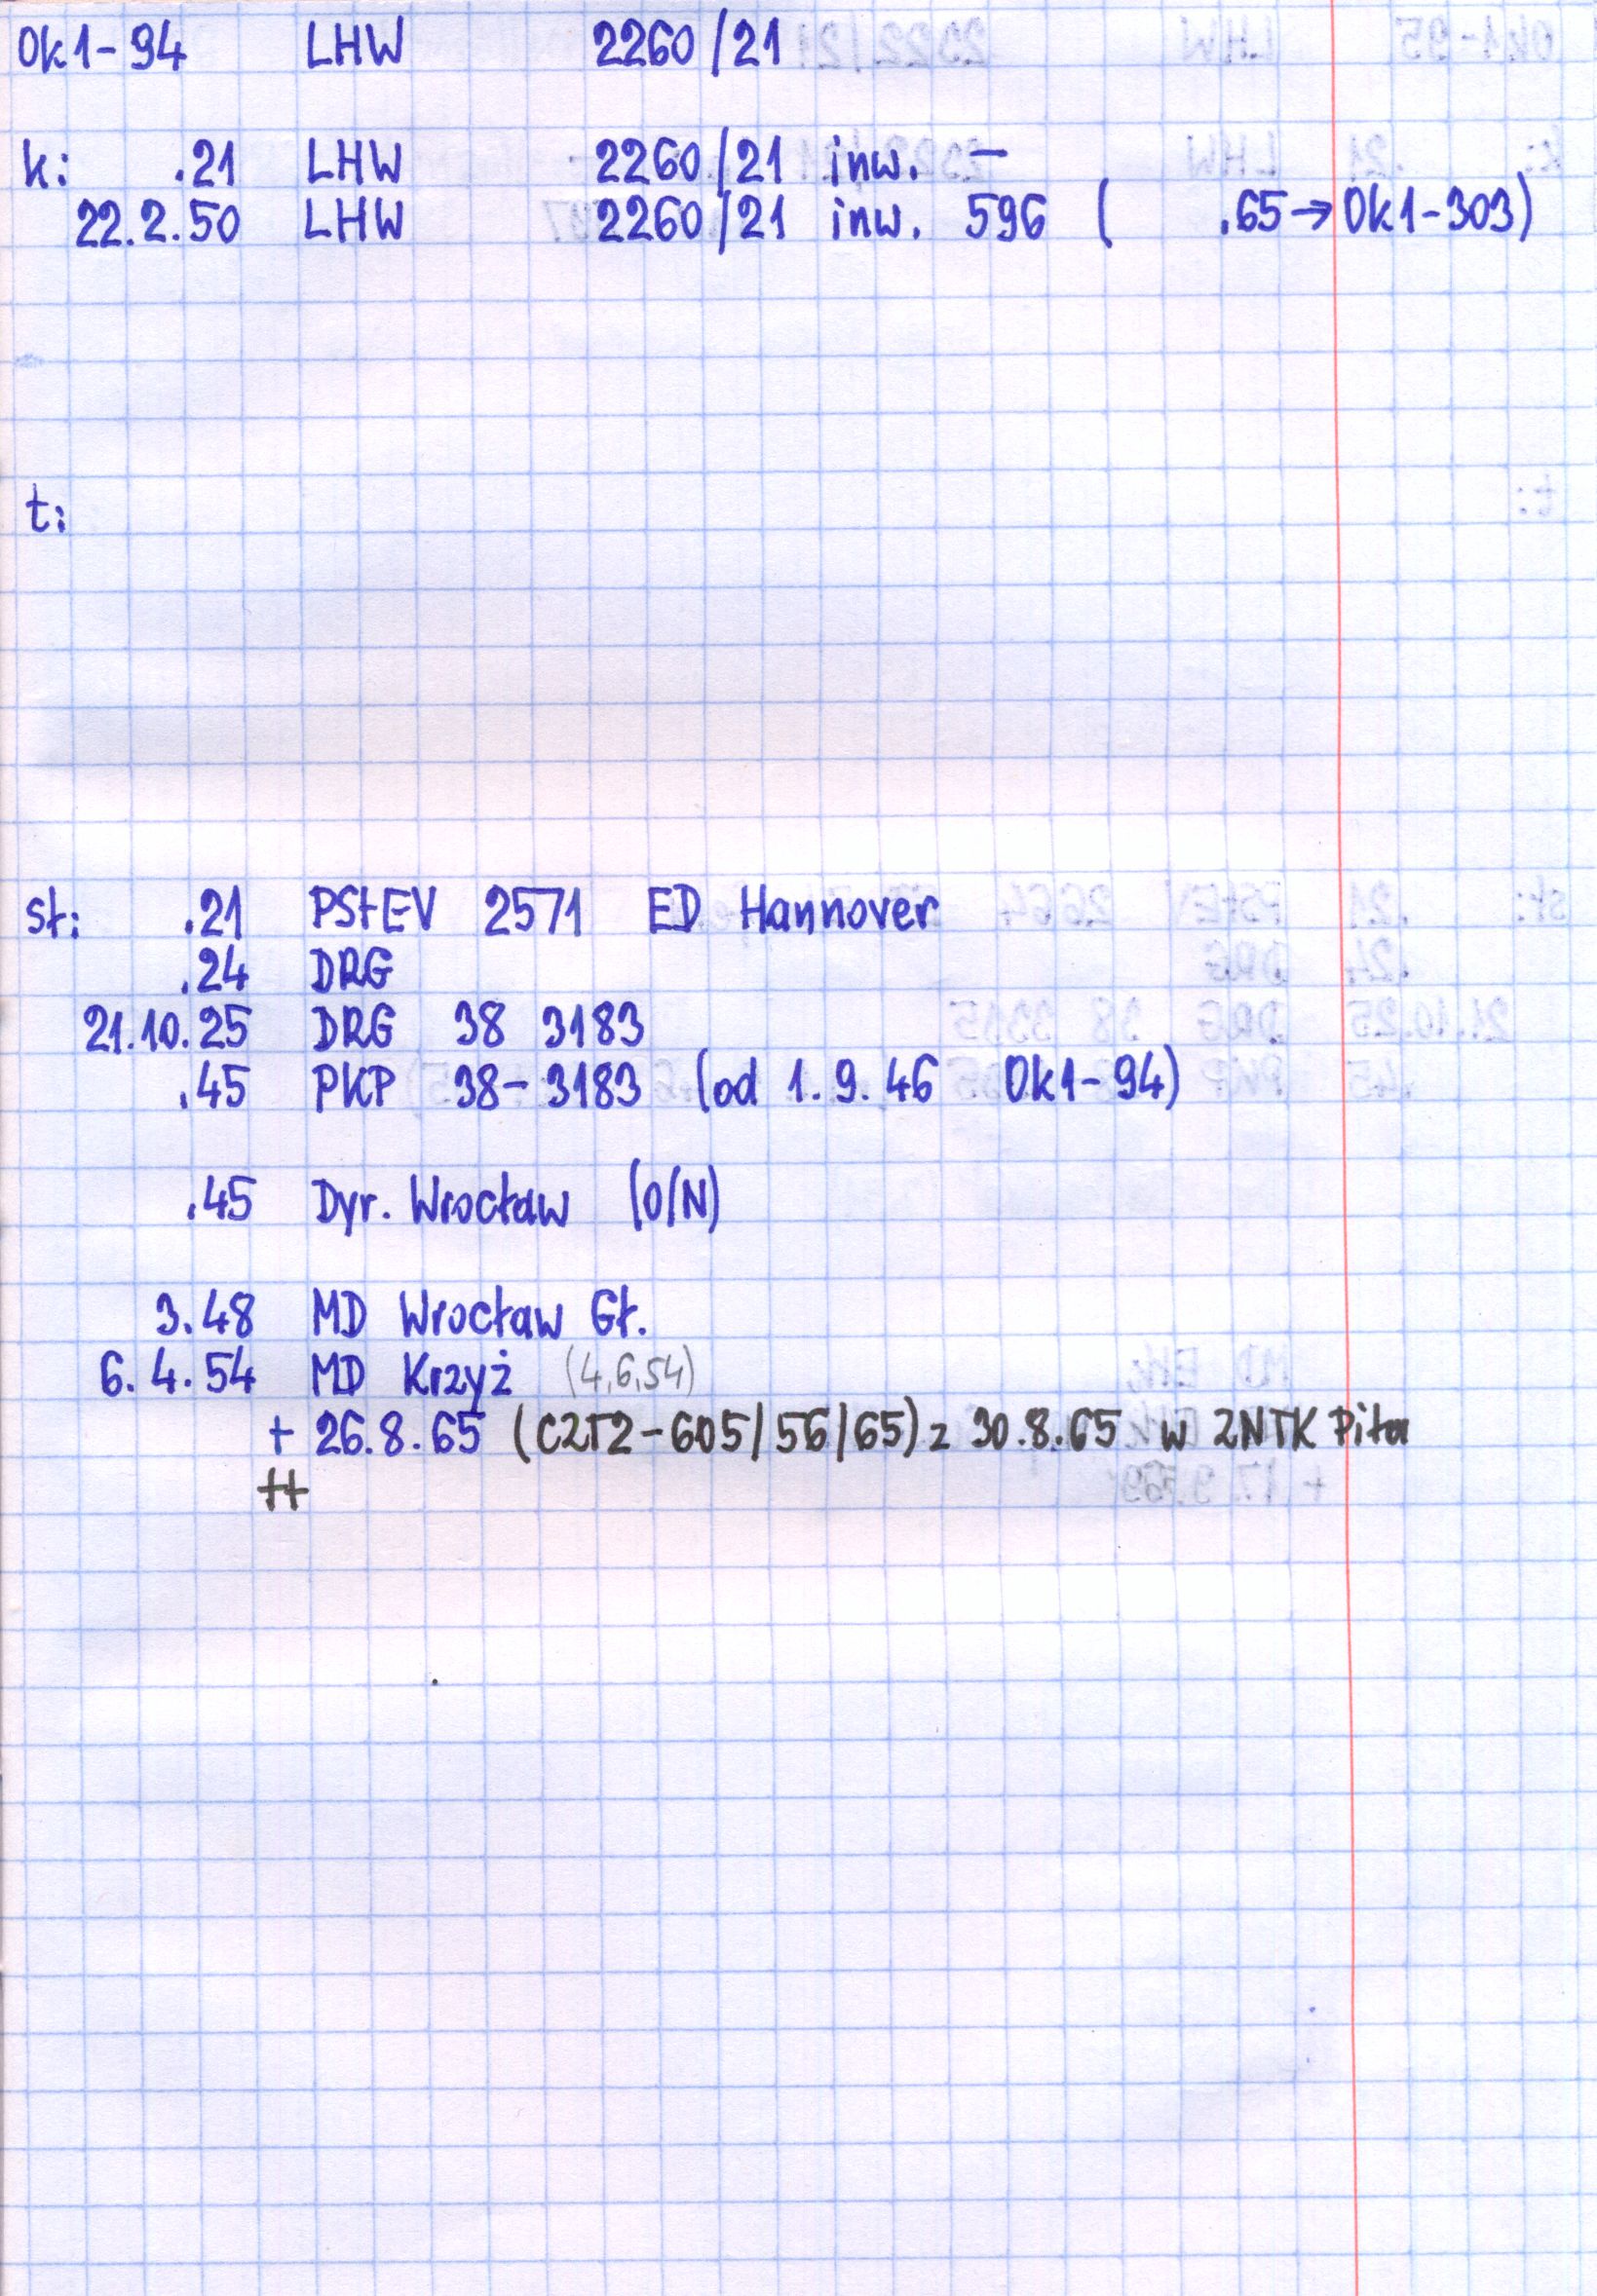 Ok1-94 LHW 2260/21
k: .21 LHW 2260/21 inw. –
22.2.50 LHW 2260/21 inw. 596 ( .65→Ok1-303)
t:
st: .21 PStEV 2571 ED Hannover
.24 DRG
21.10.25 DRG 38 3183
.45 PKP 38-3183 (od 1.9.46 Ok1-94)
.45 Dyr. Wrocław (O/N)
3.48 MD Wrocław Gł.
6.4.54 MD Krzyż (4,6,54)
+ 26.8.65 (CZTZ-605/56/65) z 30.8.65 w ZNTK Piła
++